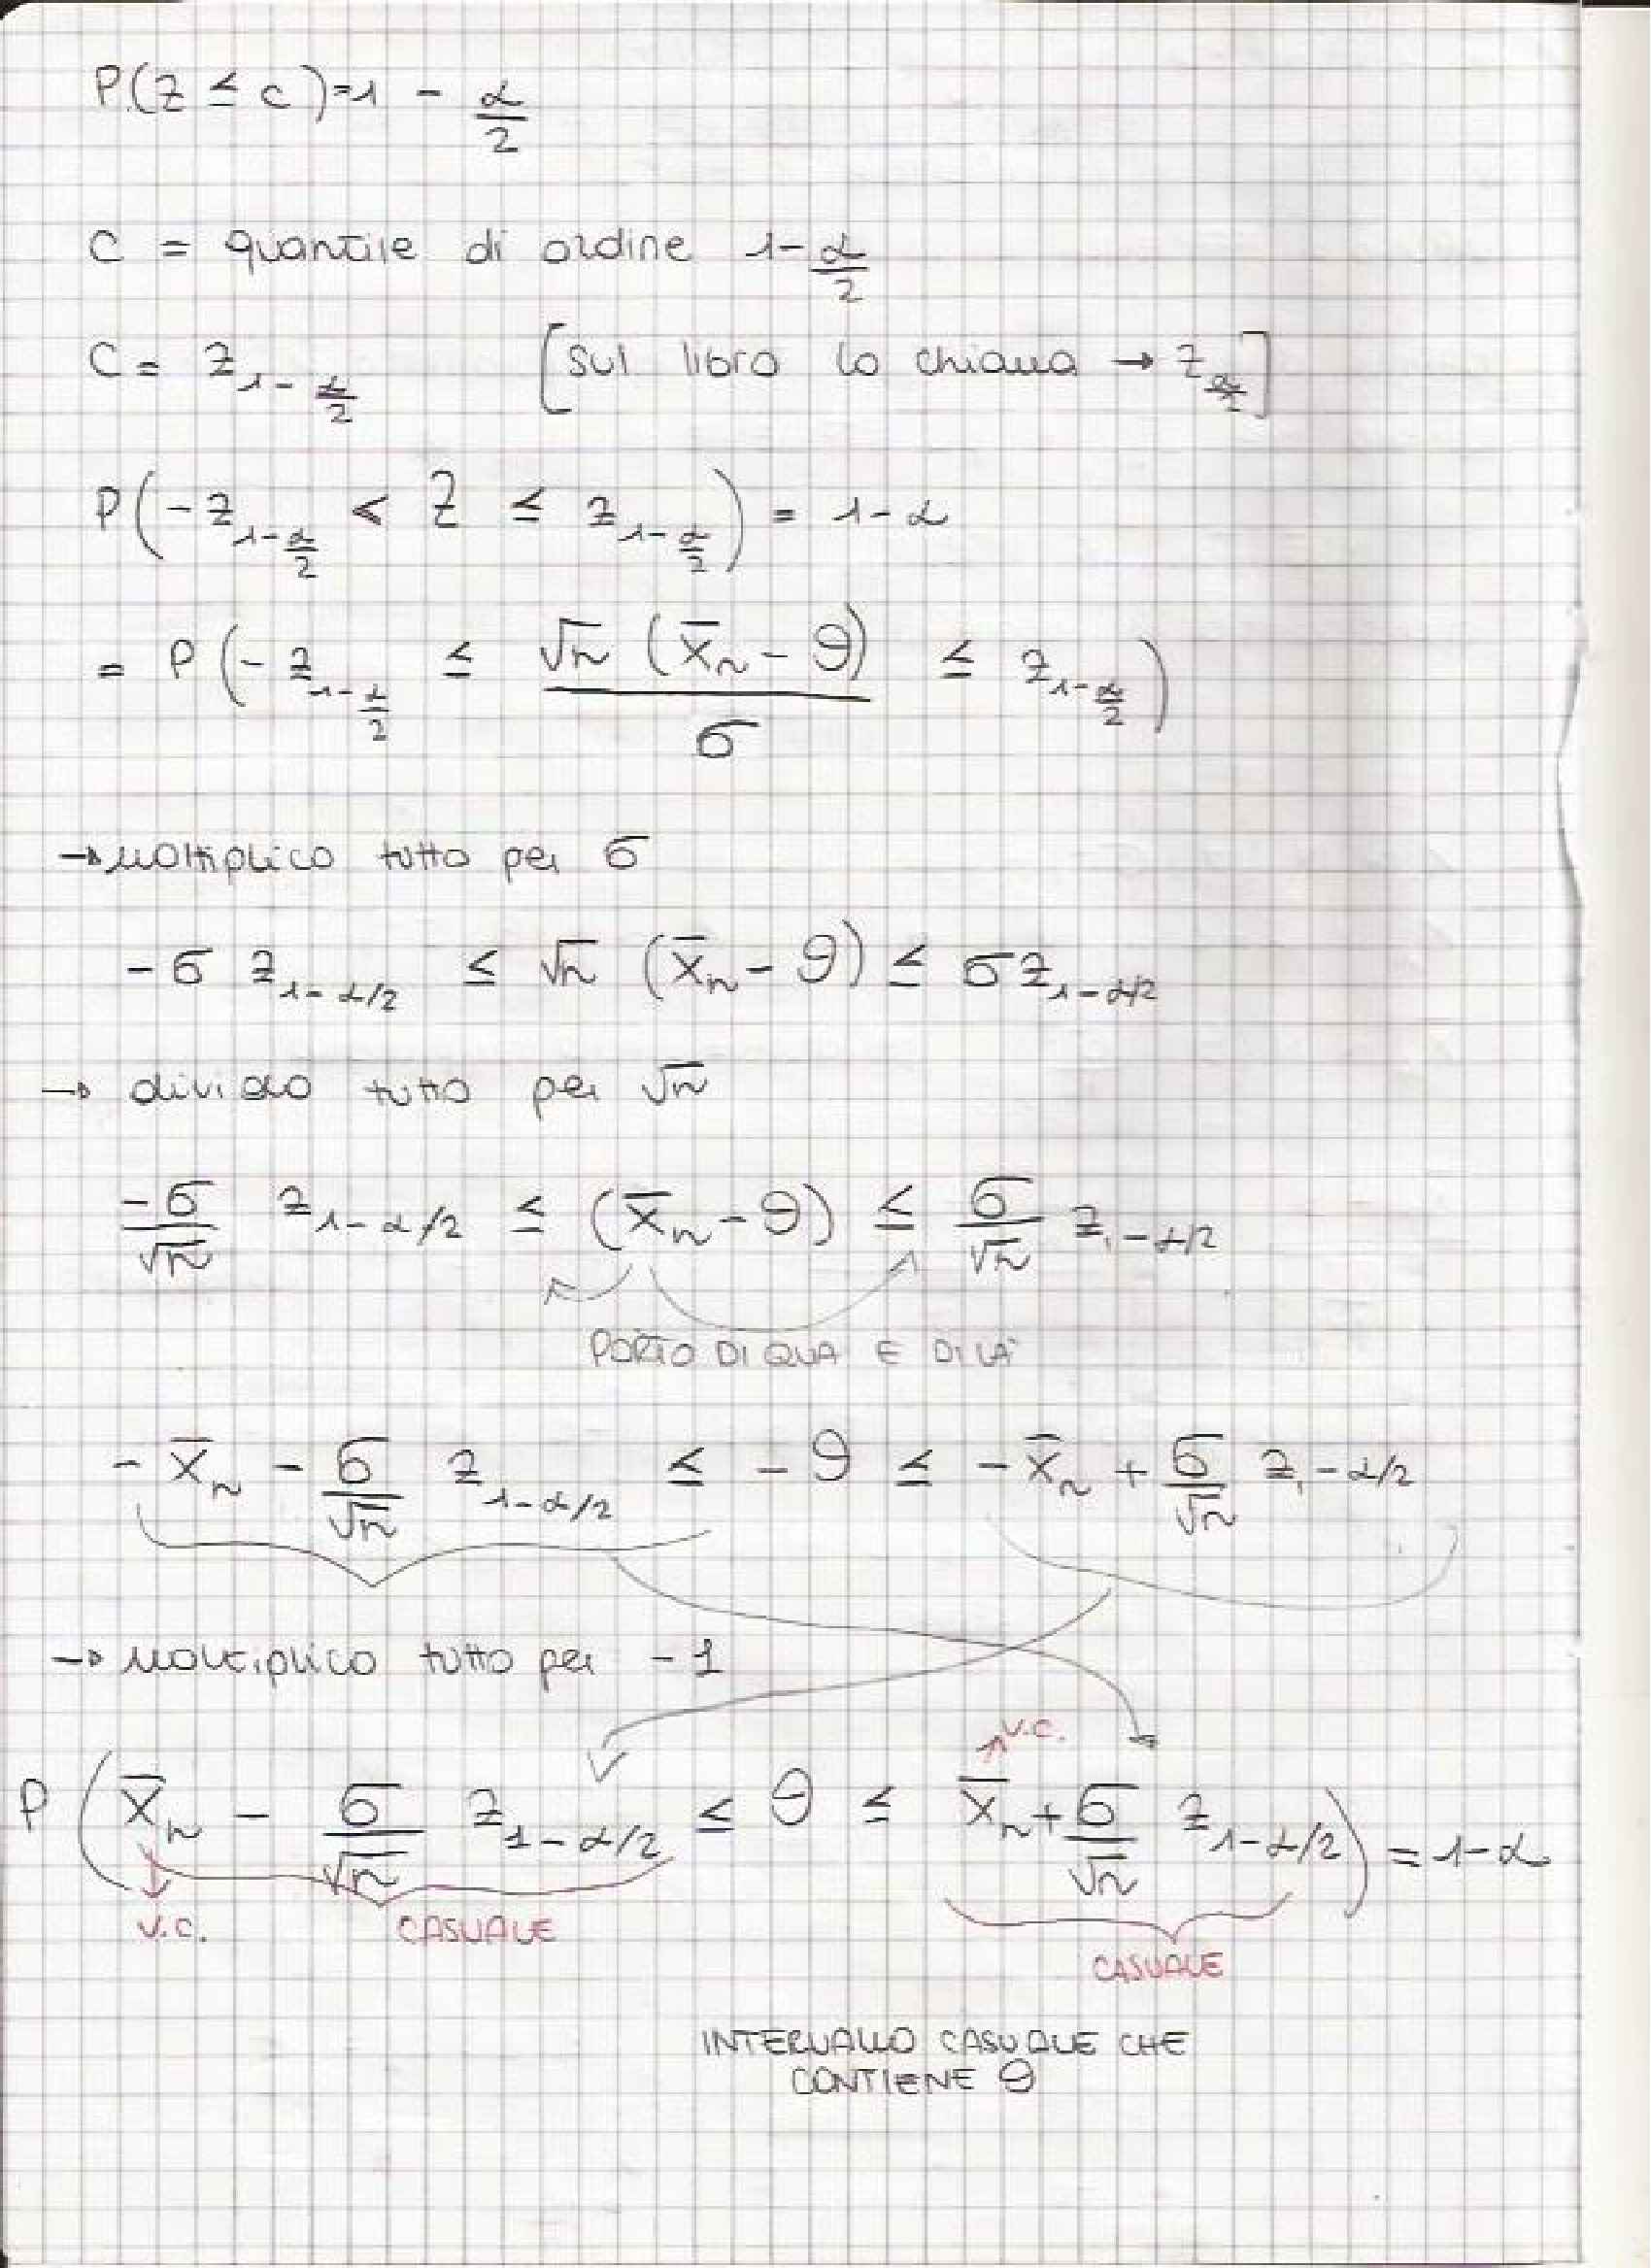 P(Z ≤ c) = 1 - α/2
C = quantile di ordine 1-α/2
C = z_{1-α/2} [sul libro lo chiama → z_{α/2}]
P(-z_{1-α/2} < Z ≤ z_{1-α/2}) = 1-α
= P(-z_{1-α/2} ≤ √n (x̄_n - ϑ)/σ ≤ z_{1-α/2})
→ moltiplico tutto per σ
-σ z_{1-α/2} ≤ √n (x̄_n - ϑ) ≤ σ z_{1-α/2}
→ divido tutto per √n
-σ/√n z_{1-α/2} ≤ (x̄_n - ϑ) ≤ σ/√n z_{1-α/2}
PORTO DI QUA E DI LA'
-x̄_n - σ/√n z_{1-α/2} ≤ -ϑ ≤ -x̄_n + σ/√n z_{1-α/2}
→ moltiplico tutto per -1
v.c.
P(x̄_n - σ/√n z_{1-α/2} ≤ θ ≤ x̄_n + σ/√n z_{1-α/2}) = 1-α
v.c. CASUALE
CASUALE
INTERVALLO CASUALE CHE
CONTIENE θ